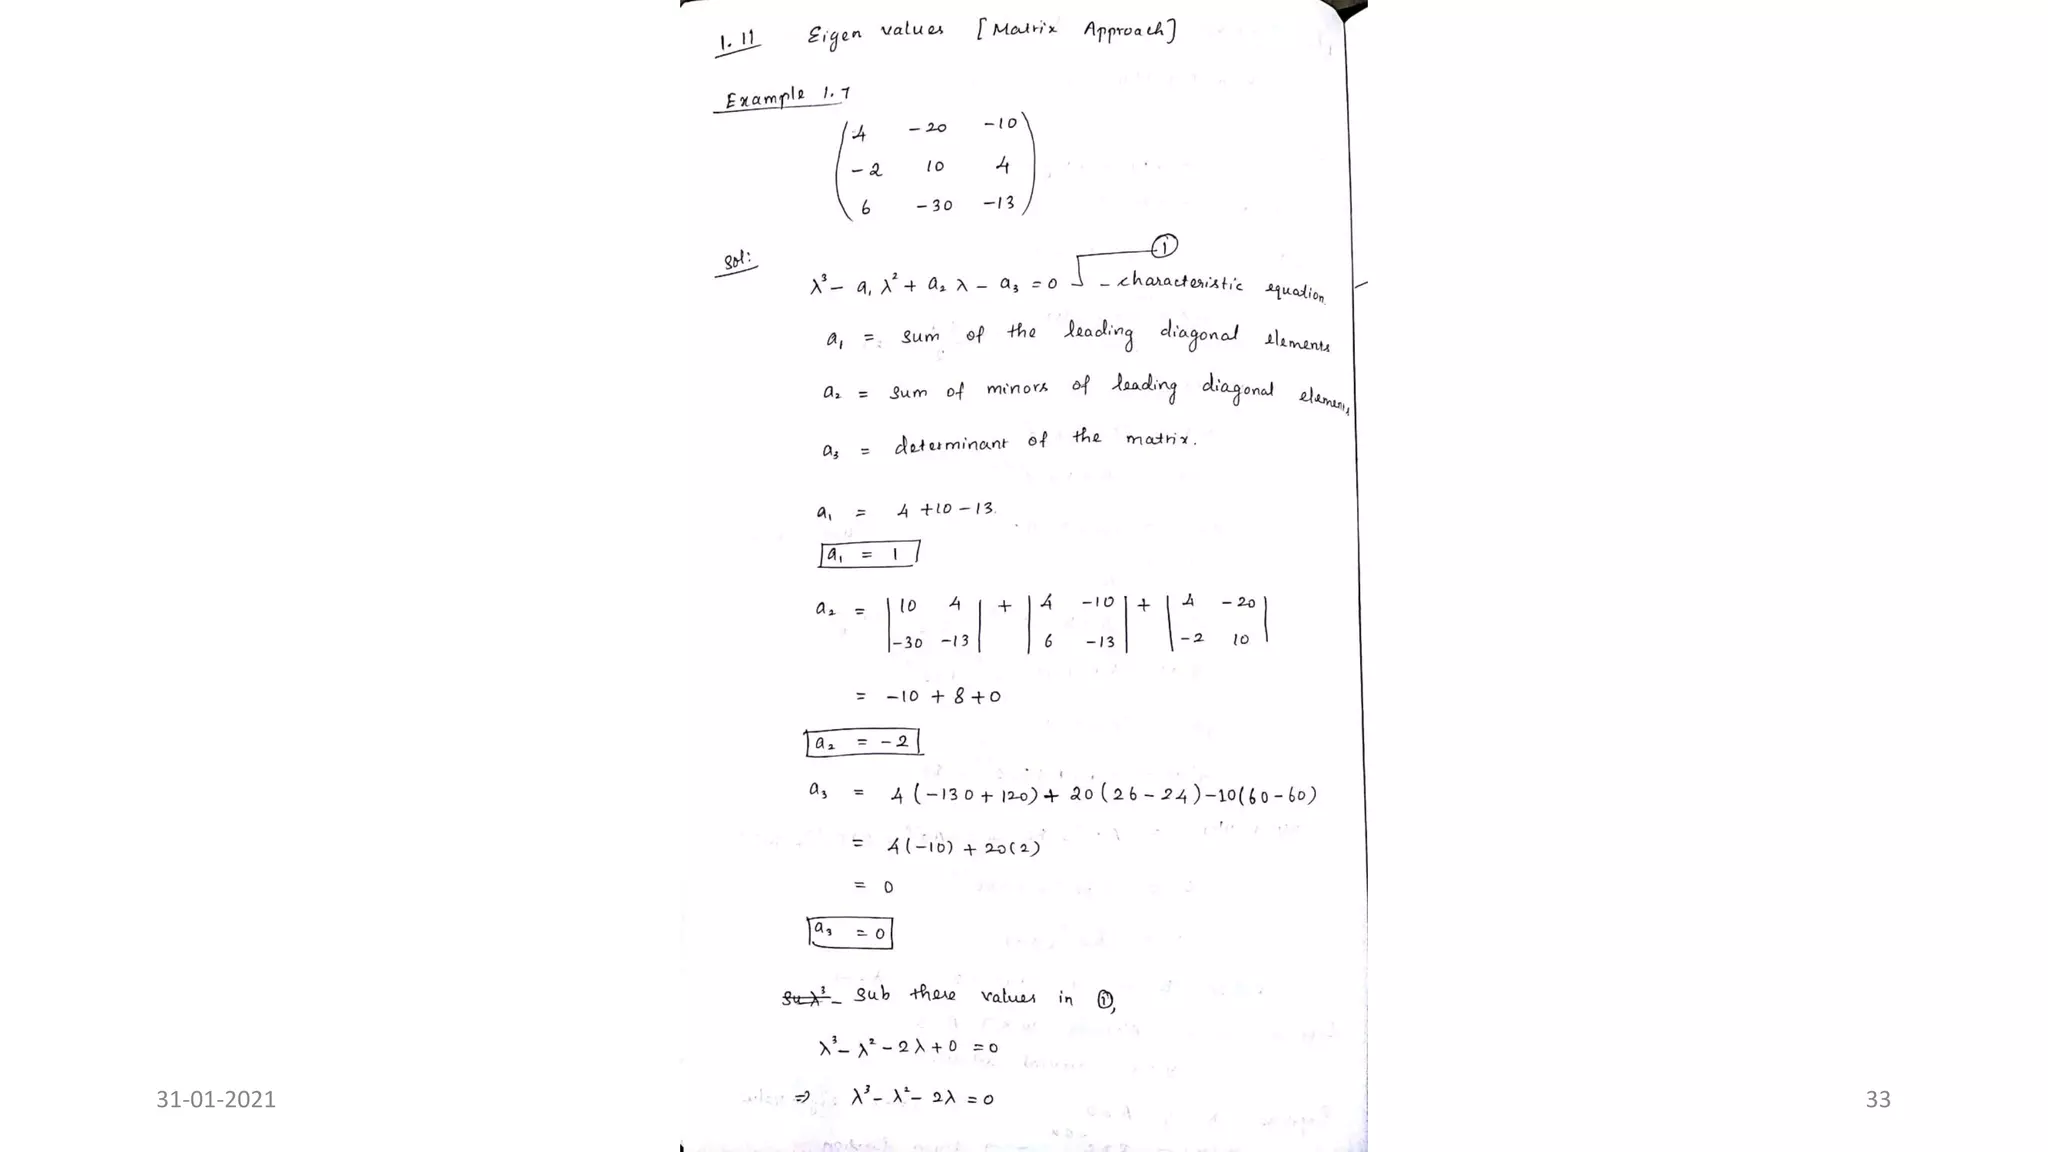 1.11 Eigen values [Matrix Approach]
Example 1.7
4 -20 -10
-2 10 4
6 -30 -13
Sol:
①
λ³ - a₁ λ² + a₂ λ - a₃ = 0 - characteristic equation
a₁ = sum of the leading diagonal elements
a₂ = sum of minors of leading diagonal elements
a₃ = determinant of the matrix.
a₁ = 4 +10 -13.
a₁ = 1
a₂ = |10 4| + |4 -10| + |4 -20|
|-30 -13| |6 -13| |-2 10|
= -10 + 8 + 0
a₂ = -2
a₃ = 4(-130 + 120) + 20(26 - 24) - 10(60 - 60)
= 4(-10) + 20(2)
= 0
a₃ = 0
Sub these values in ①,
λ³ - λ² - 2λ + 0 = 0
⇒ λ³ - λ² - 2λ = 0
31-01-2021
33